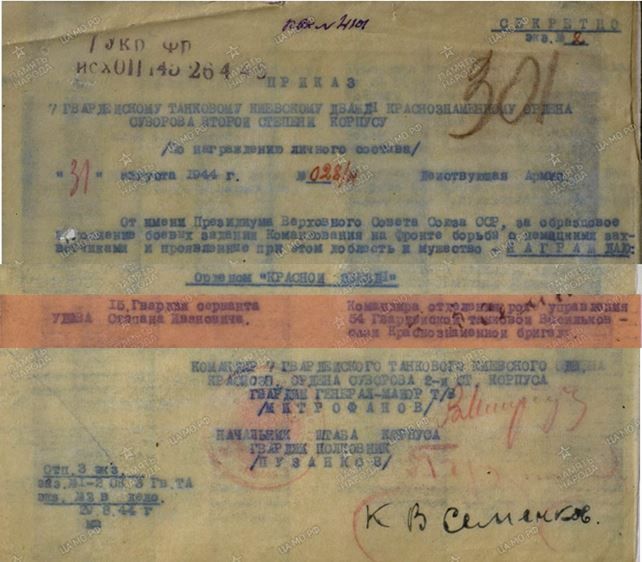 СЕКРЕТНО
экз.№ 2
301
ПРИКАЗ
7 ГВАРДЕЙСКОМУ ТАНКОВОМУ КИЕВСКОМУ ДВАЖДЫ КРАСНОЗНАМЕННОМУ ОРДЕНА
СУВОРОВА ВТОРОЙ СТЕПЕНИ КОРПУСУ
/По награждению личного состава/
"31" августа 1944 г. № 028/н Действующая Армия.
От имени Президиума Верховного Совета Союза ССР, за образцовое
выполнение боевых заданий Командования на фронте борьбы с немецкими зах-
ватчиками и проявленные при этом доблесть и мужество - НАГРАЖДАЮ:
Орденом "КРАСНОЙ ЗВЕЗДЫ"
15. Гвардии сержанта
Степана Ивановича.
Командира отделения роты управления
54 Гвардейской танковой Васильков-
ской Краснознаменной бригады.
КОМАНДИР 7 ГВАРДЕЙСКОГО ТАНКОВОГО КИЕВСКОГО
КРАСНОЗ. ОРДЕНА СУВОРОВА 2-й СТ. КОРПУСА
ГВАРДИИ ГЕНЕРАЛ-МАЙОР Т/В
/МИТРОФАНОВ/
НАЧАЛЬНИК ШТАБА КОРПУСА
ГВАРДИИ ПОЛКОВНИК
/ПУЗАНКОВ/
Отп. 3 экз.
экз. №1-2 ОК 3 Гв.ТА
экз. №3 в дело.
29.8.44 г
К В Семенков.
ПАМЯТЬ НАРОДА
ЦАМО.РФ